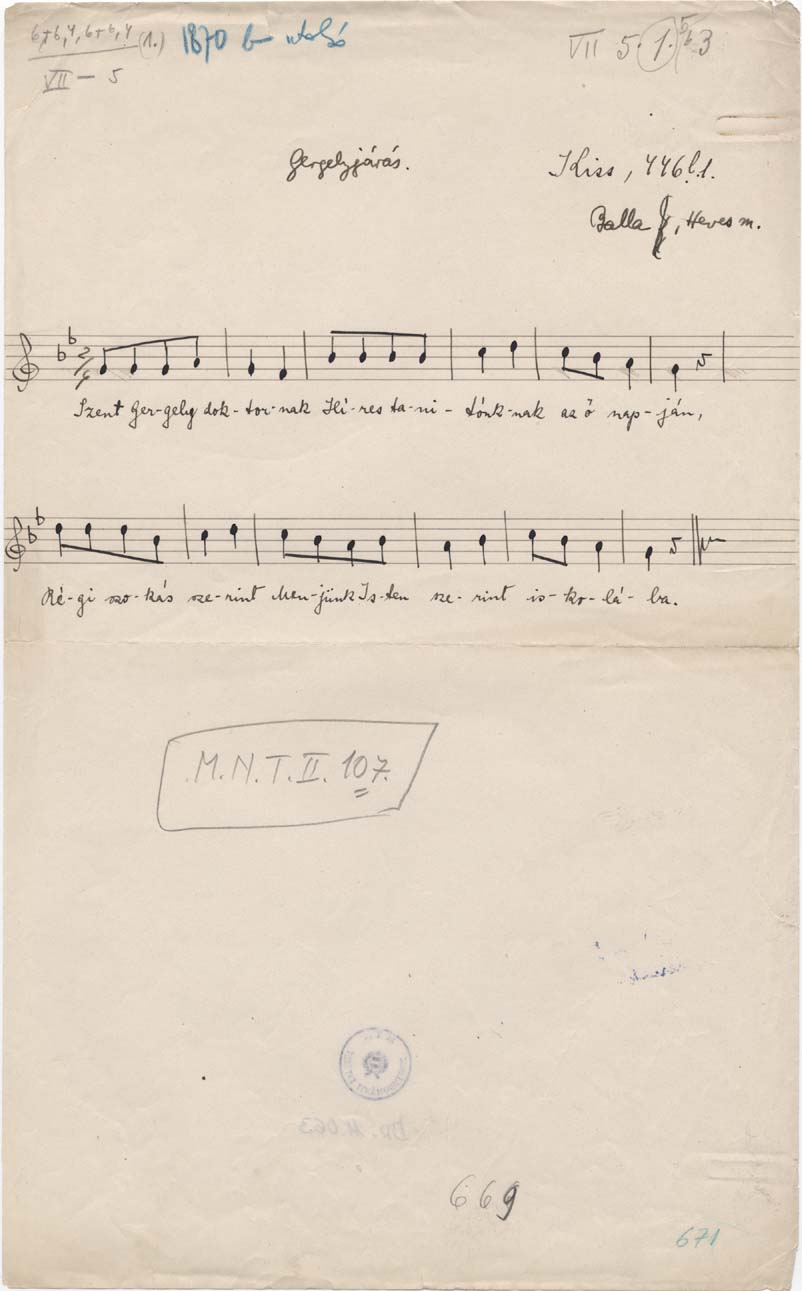 6+6,4,6+6,4 (1.) 1870 b utolsó
VII – 5
VII 5. 1. 5 b 3
Gergelyjárás.
Kiss, 446 l. 1.
Balla, Heves m.
2/4
Szent Ger-gely dok-tor-nak Hí-res ta-ni-tónk-nak az ő nap-ján,
Ré-gi szo-kás sze-rint Men-jünk Is-ten sze-rint is-ko-lá-ba.
M.N.T. II. 107.
669
671